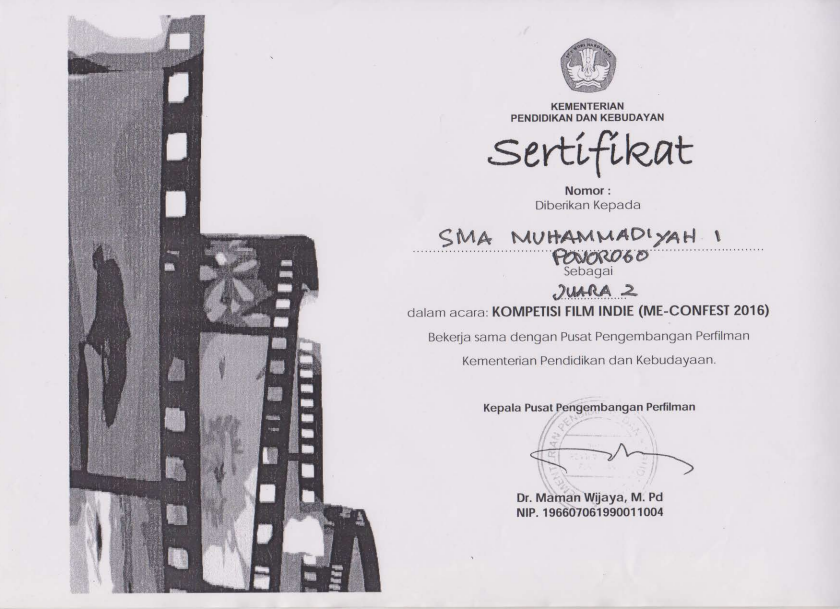 KEMENTERIAN
PENDIDIKAN DAN KEBUDAYAN
Sertifikat
Nomor :
Diberikan Kepada
SMA MUHAMMADIYAH 1
PONOROGO
Sebagai
JUARA 2
dalam acara: KOMPETISI FILM INDIE (ME-CONFEST 2016)
Bekerja sama dengan Pusat Pengembangan Perfilman
Kementerian Pendidikan dan Kebudayaan.
Kepala Pusat Pengembangan Perfilman
Dr. Maman Wijaya, M. Pd
NIP. 196607061990011004